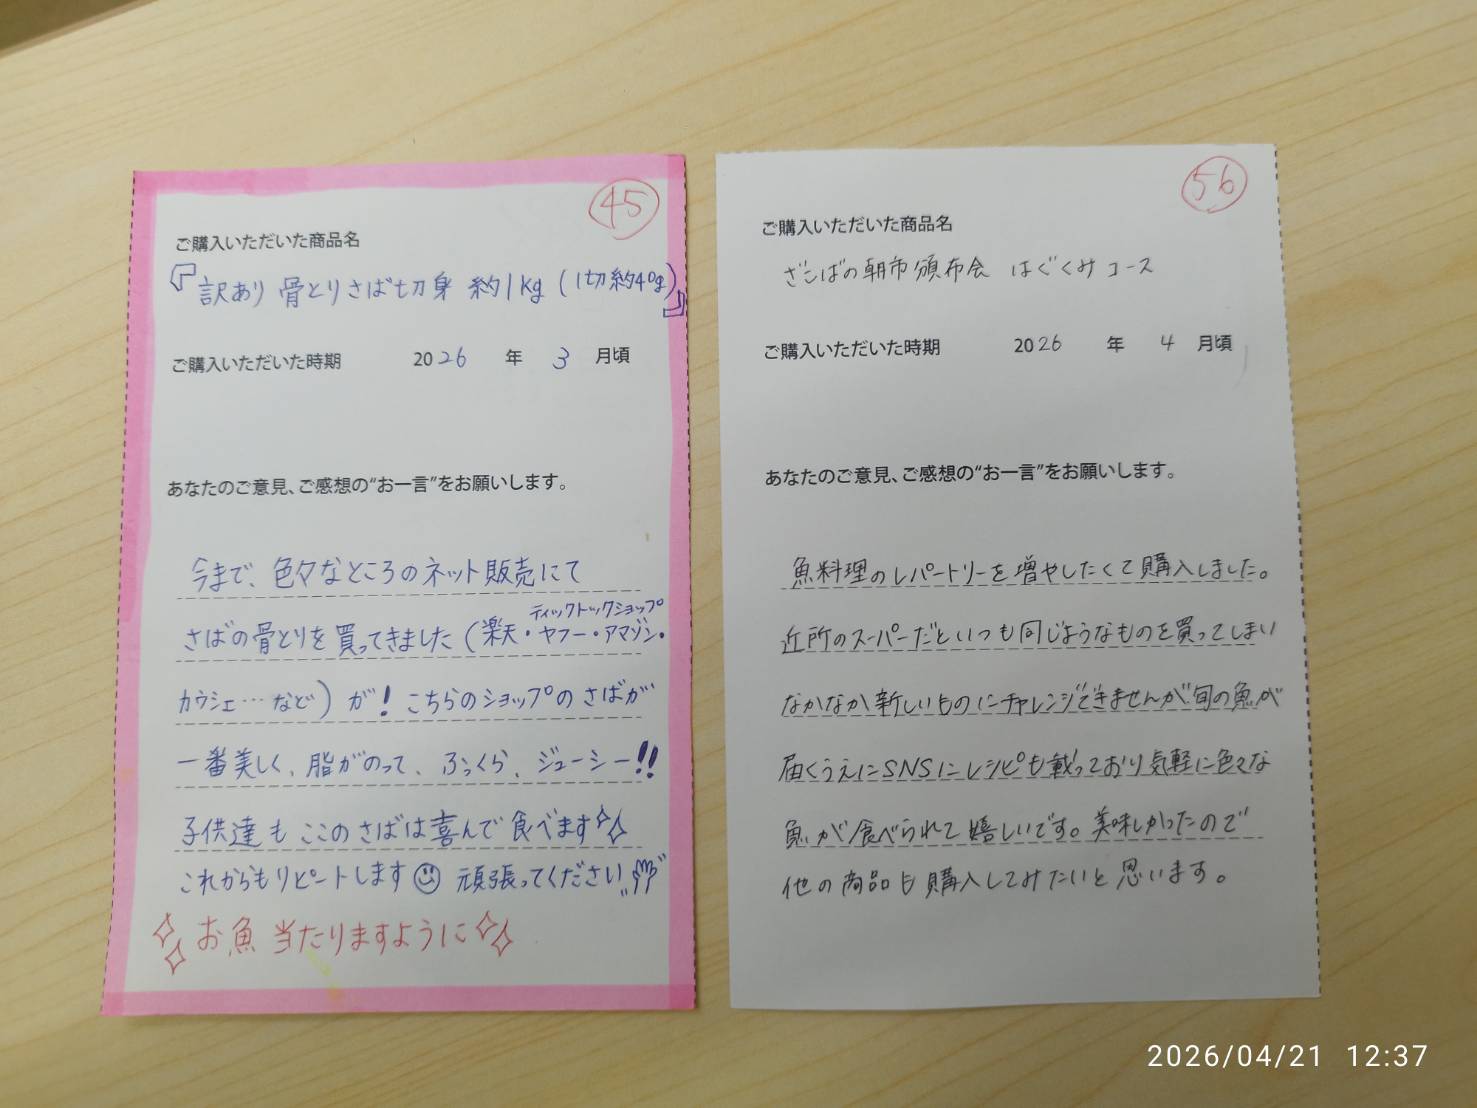 45
ご購入いただいた商品名
『訳あり 骨とりさば切身 約1kg (1切約40g)』
ご購入いただいた時期 2026 年 3 月頃
あなたのご意見、ご感想の“お一言”をお願いします。
今まで、色々なところのネット販売にて
ティックトックショップ
さばの骨とりを買ってきました(楽天・ヤフー・アマゾン・
カウシェ…など)が!こちらのショップのさばが
一番美しく、脂がのって、ふっくら、ジューシー!!
子供達もここのさばは喜んで食べます
これからもリピートします 頑張ってください
お魚当たりますように
56
ご購入いただいた商品名
ざこばの朝市頒布会 はぐくみコース
ご購入いただいた時期 2026 年 4 月頃
あなたのご意見、ご感想の“お一言”をお願いします。
魚料理のレパートリーを増やしたくて購入しました。
近所のスーパーだといつも同じようなものを買ってしまい
なかなか新しいものにチャレンジできませんが旬の魚が
届くうえにSNSにレシピも載っており気軽に色々な
魚が食べられて嬉しいです。美味しかったので
他の商品も購入してみたいと思います。
2026/04/21 12:37